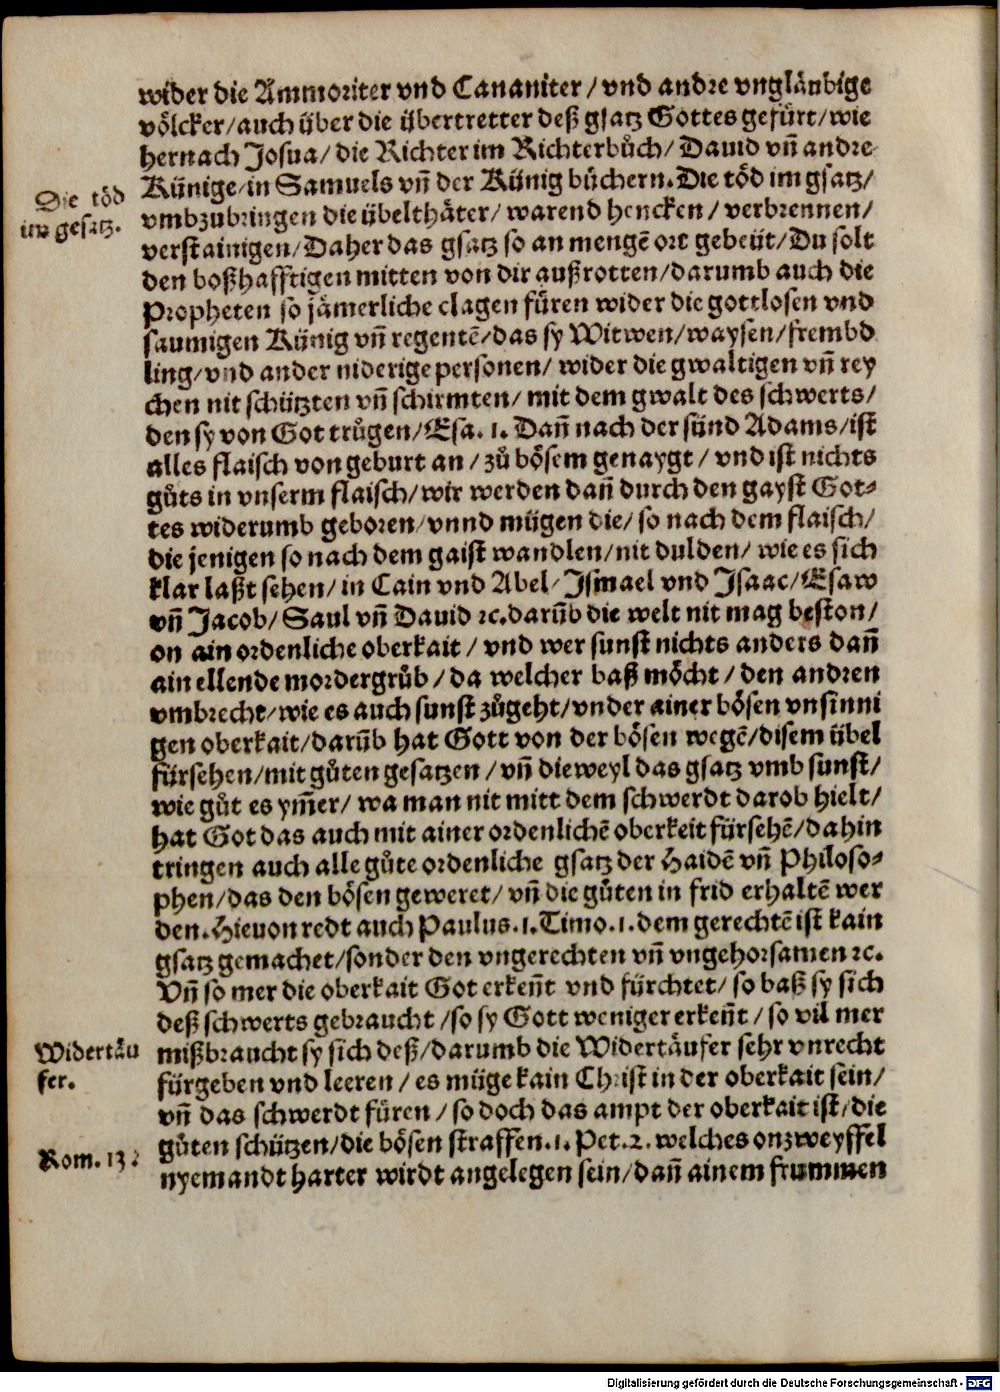 wider die Ammoriter vnd Cananiter / vnd andre vngläubige
völcker / auch über die übertretter deß gsatz Gottes gefürt / wie
hernach Josua / die Richter im Richterbůch / Dauid vñ andre
Künige / in Samuels vñ der Künig büchern. Die töd im gsatz /
Die töd
im gesatz.
vmbzubringen die übelthäter / warend hencken / verbrennen /
verstainigen / Daher das gsatz so an mengē ort gebeüt / Du solt
den boßhafftigen mitten von dir außrotten / darumb auch die
Propheten so jämerliche clagen füren wider die gottlosen vnd
saumigen Künig vñ regentē / das sy Witwen / waysen / frembd
ling / vnd ander niderige personen / wider die gwaltigen vñ rey
chen nit schützten vñ schirmten / mit dem gwalt des schwerts /
den sy von Got trůgen / Esa. 1. Dañ nach der sünd Adams / ist
alles flaisch von geburt an / zů bösem genaygt / vnd ist nichts
gůts in vnserm flaisch / wir werden dañ durch den gayst Got⸗
tes widerumb geboren / vnnd mügen die / so nach dem flaisch /
die jenigen so nach dem gaist wandlen / nit dulden / wie es sich
klar laßt sehen / in Cain vnd Abel / Ismael vnd Isaac / Esaw
vñ Jacob / Saul vñ Dauid ꝛc. darūb die welt nit mag beston /
on ain ordenliche oberkait / vnd wer sunst nichts anders dañ
ain ellende mordergrůb / da welcher baß möcht / den andren
vmbrecht / wie es auch sunst zůgeht / vnder ainer bösen vnsinni
gen oberkait / darūb hat Gott von der bösen wegē / disem übel
fürsehen / mit gůten gesatzen / vñ dieweyl das gsatz vmb sunst /
wie gůt es ym̃er / wa man nit mitt dem schwerdt darob hielt /
hat Got das auch mit ainer ordenlichē oberkeit fürsehē / dahin
tringen auch alle gůte ordenliche gsatz der Haidē vñ Philoso⸗
phen / das den bösen geweret / vñ die gůten in frid erhaltē wer
den. Hieuon redt auch Paulus. 1. Timo. 1. dem gerechtē ist kain
gsatz gemachet / sonder den vngerechten vñ vngehorsamen ꝛc.
Vñ so mer die oberkait Got erkeñt vnd fürchtet / so baß sy sich
deß schwerts gebraucht / so sy Gott weniger erkeñt / so vil mer
Widertäu
fer.
mißbraucht sy sich deß / darumb die Widertäufer sehr vnrecht
fürgeben vnd leeren / es müge kain Christ in der oberkait sein /
vñ das schwerdt füren / so doch das ampt der oberkait ist / die
Rom. 13.
gůten schützen / die bösen straffen. 1. Pet. 2. welches onzweyffel
nyemandt harter wirdt angelegen sein / dañ ainem frummen
Digitalisierung gefördert durch die Deutsche Forschungsgemeinschaft - DFG